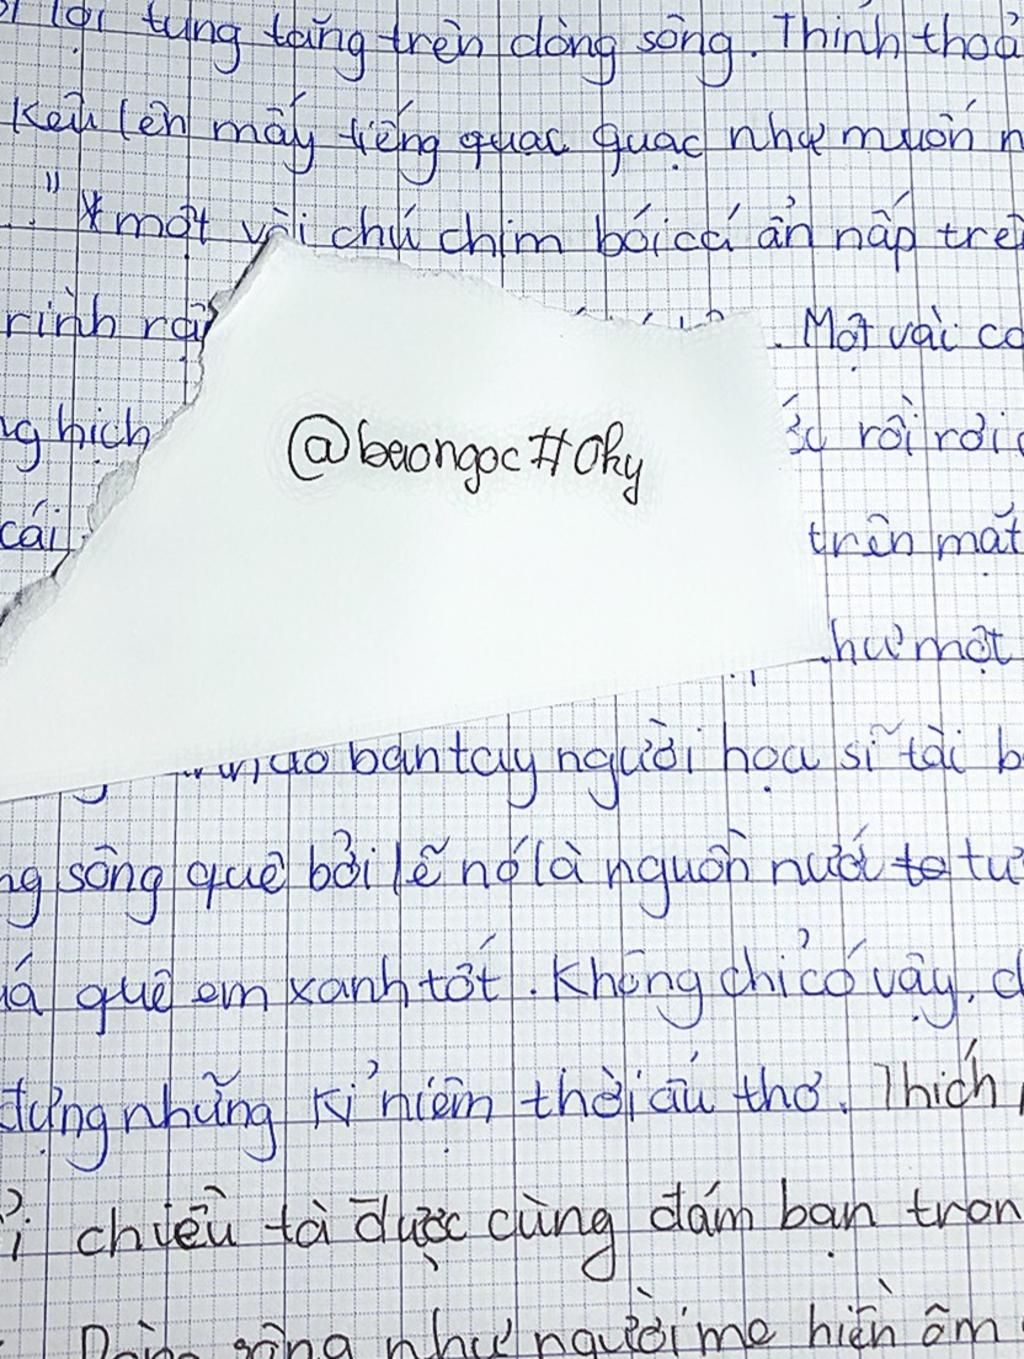 lội tung tăng trên dòng sông. Thỉnh thoả
kêu lên mấy tiếng quạc quạc như muốn n
..." một vài chú chim bói cá ẩn nấp trê
rình rậ . Một vài co
ng hịch rồi rơi
cái trên mặt
như một
bàn tay người họa sĩ tài b
ng sông quê bởi lẽ nó là nguồn nước tư
quê em xanh tốt. Không chỉ có vậy, d
đựng những kỉ niệm thời ấu thơ. Thích
chiều tà được cùng đám bạn tron
Dòng sông như người mẹ hiền ôm
@baongoc#0ky